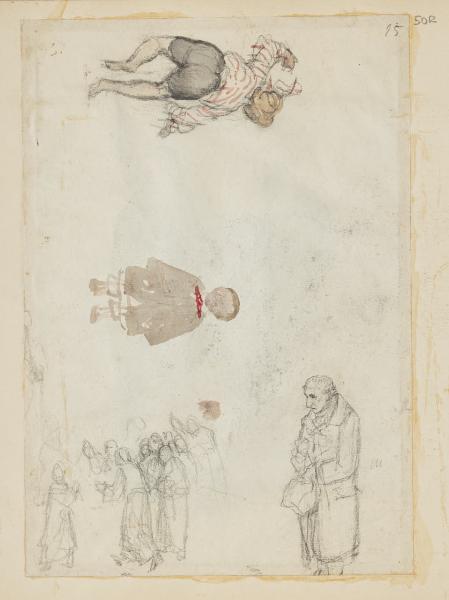 95
50R